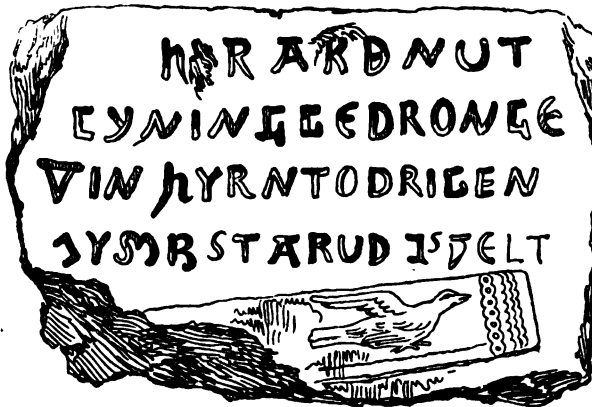 HER ARÐNUT
CYNINGGEDRONGE
VIN HYRNTODRIGEN
⁊YMBSTARUD ⁊SVELT